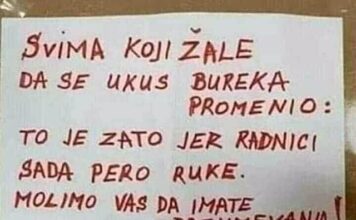 SVIMA KOJI ŽALE
DA SE UKUS BUREKA
PROMENIO:
TO JE ZATO JER RADNICI
SADA PERO RUKE.
MOLIMO VAS DA IMATE